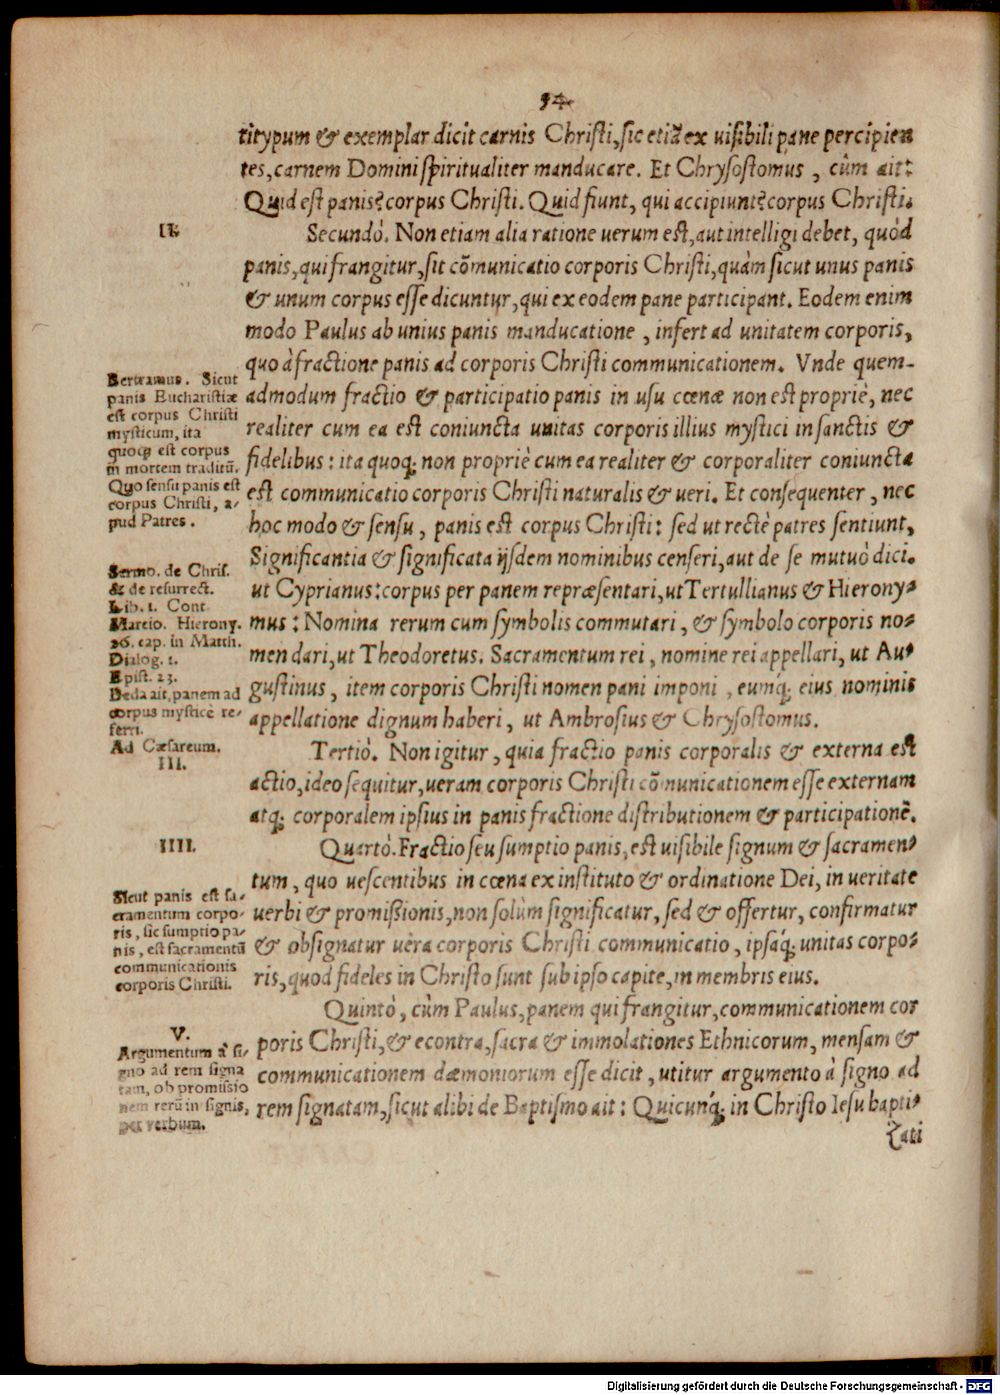 54
titypum & exemplar dicit carnis Christi, sic etiã ex uisibili pane percipien
tes, carnem Domini spiritualiter manducare. Et Chrysostomus, cùm ait:
Quid est panis? corpus Christi. Quid fiunt, qui accipiunt? corpus Christi.
II.
Secundò. Non etiam alia ratione uerum est, aut intelligi debet, quòd
panis, qui frangitur, sit cõmunicatio corporis Christi, quàm sicut unus panis
& unum corpus esse dicuntur, qui ex eodem pane participant. Eodem enim
modo Paulus ab unius panis manducatione, infert ad unitatem corporis,
quo à fractione panis ad corporis Christi communicationem. Vnde quem-
admodum fractio & participatio panis in usu cœnæ non est propriè, nec
realiter cum ea est coniuncta unitas corporis illius mystici in sanctis &
fidelibus: ita quoq; non propriè cum ea realiter & corporaliter coniuncta
est communicatio corporis Christi naturalis & ueri. Et consequenter, nec
hoc modo & sensu, panis est corpus Christi: sed ut rectè patres sentiunt,
Significantia & significata ijsdem nominibus censeri, aut de se mutuò dici.
ut Cyprianus: corpus per panem repræsentari, ut Tertullianus & Hierony-
mus: Nomina rerum cum symbolis commutari, & symbolo corporis no-
men dari, ut Theodoretus. Sacramentum rei, nomine rei appellari, ut Au-
gustinus, item corporis Christi nomen pani imponi, eumq́; eius nominis
appellatione dignum haberi, ut Ambrosius & Chrysostomus.
Bertramus. Sicut
panis Eucharistiæ
est corpus Christi
mysticum, ita
quoq; est corpus
in mortem traditũ.
Quo sensu panis est
corpus Christi, a-
pud Patres.
Sermo. de Chris.
& de resurrect.
Lib. 1. Cont
Marcio. Hierony.
26. cap. in Matth.
Dialog. 1.
Epist. 23.
Beda ait, panem ad
corpus mysticè re-
ferri.
Ad Cæsareum.
III.
Tertiò. Non igitur, quia fractio panis corporalis & externa est
actio, ideo sequitur, ueram corporis Christi cõmunicationem esse externam
atq; corporalem ipsius in panis fractione distributionem & participationē.
IIII.
Quartò. Fractio seu sumptio panis, est uisibile signum & sacramen-
tum, quo uescentibus in cœna ex instituto & ordinatione Dei, in ueritate
uerbi & promißionis, non solùm significatur, sed & offertur, confirmatur
& obsignatur uera corporis Christi communicatio, ipsaq́; unitas corpo-
ris, quod fideles in Christo sunt sub ipso capite, in membris eius.
Sicut panis est sa-
cramentum corpo-
ris, sic sumptio pa-
nis, est sacramentũ
communicationis
corporis Christi.
V.
Quintò, cùm Paulus, panem qui frangitur, communicationem cor
poris Christi, & econtra, sacra & immolationes Ethnicorum, mensam &
communicationem dæmoniorum esse dicit, utitur argumento à signo ad
rem signatam, sicut alibi de Baptismo ait: Quicunq́; in Christo Iesu bapti-
Argumentum à si-
gno ad rem signa
tam, ob promissio
nem rerũ in signis,
per verbum.
zati
Digitalisierung gefördert durch die Deutsche Forschungsgemeinschaft - DFG